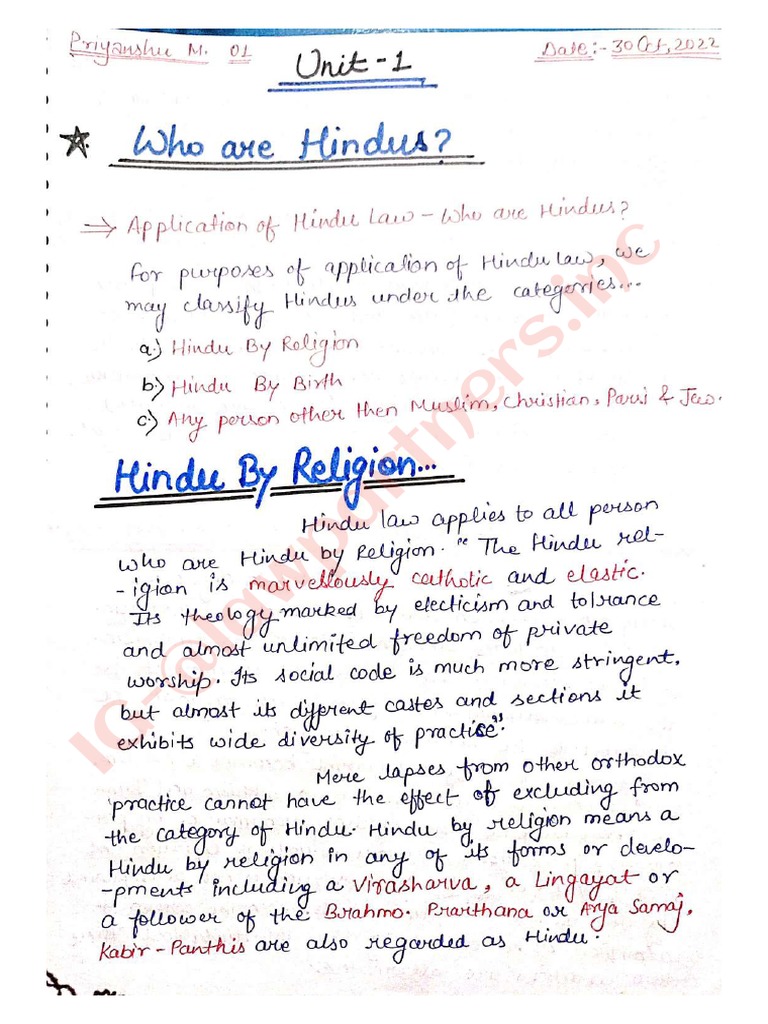 Priyanshu M. 01
Date:- 30 Oct, 2022
Unit-1
Who are Hindus?
⇒ Application of Hindu Law - Who are Hindus?
For purposes of application of Hindu law, we
may classify Hindus under the categories...
a.) Hindu By Religion
b.) Hindu By Birth
c.) Any person other then Muslim, Christian, Parsi & Jew.
Hindu By Religion...
Hindu law applies to all person
who are Hindu by Religion. "The Hindu rel-
-igion is marvellously catholic and elastic.
Its theology marked by electicism and tolrance
and almost unlimited freedom of private
worship. Its social code is much more stringent,
but almost its different castes and sections it
exhibits wide diversity of practice".
Mere lapses from other orthodox
practice cannot have the effect of excluding from
the category of Hindu. Hindu by religion means a
Hindu by religion in any of its forms or develo-
-pments including a Virasharva, a Lingayat or
a follower of the Brahmo. Prarthana or Arya Samaj,
Kabir-Panthis are also regarded as Hindu.
IG-@lawpartners.inc